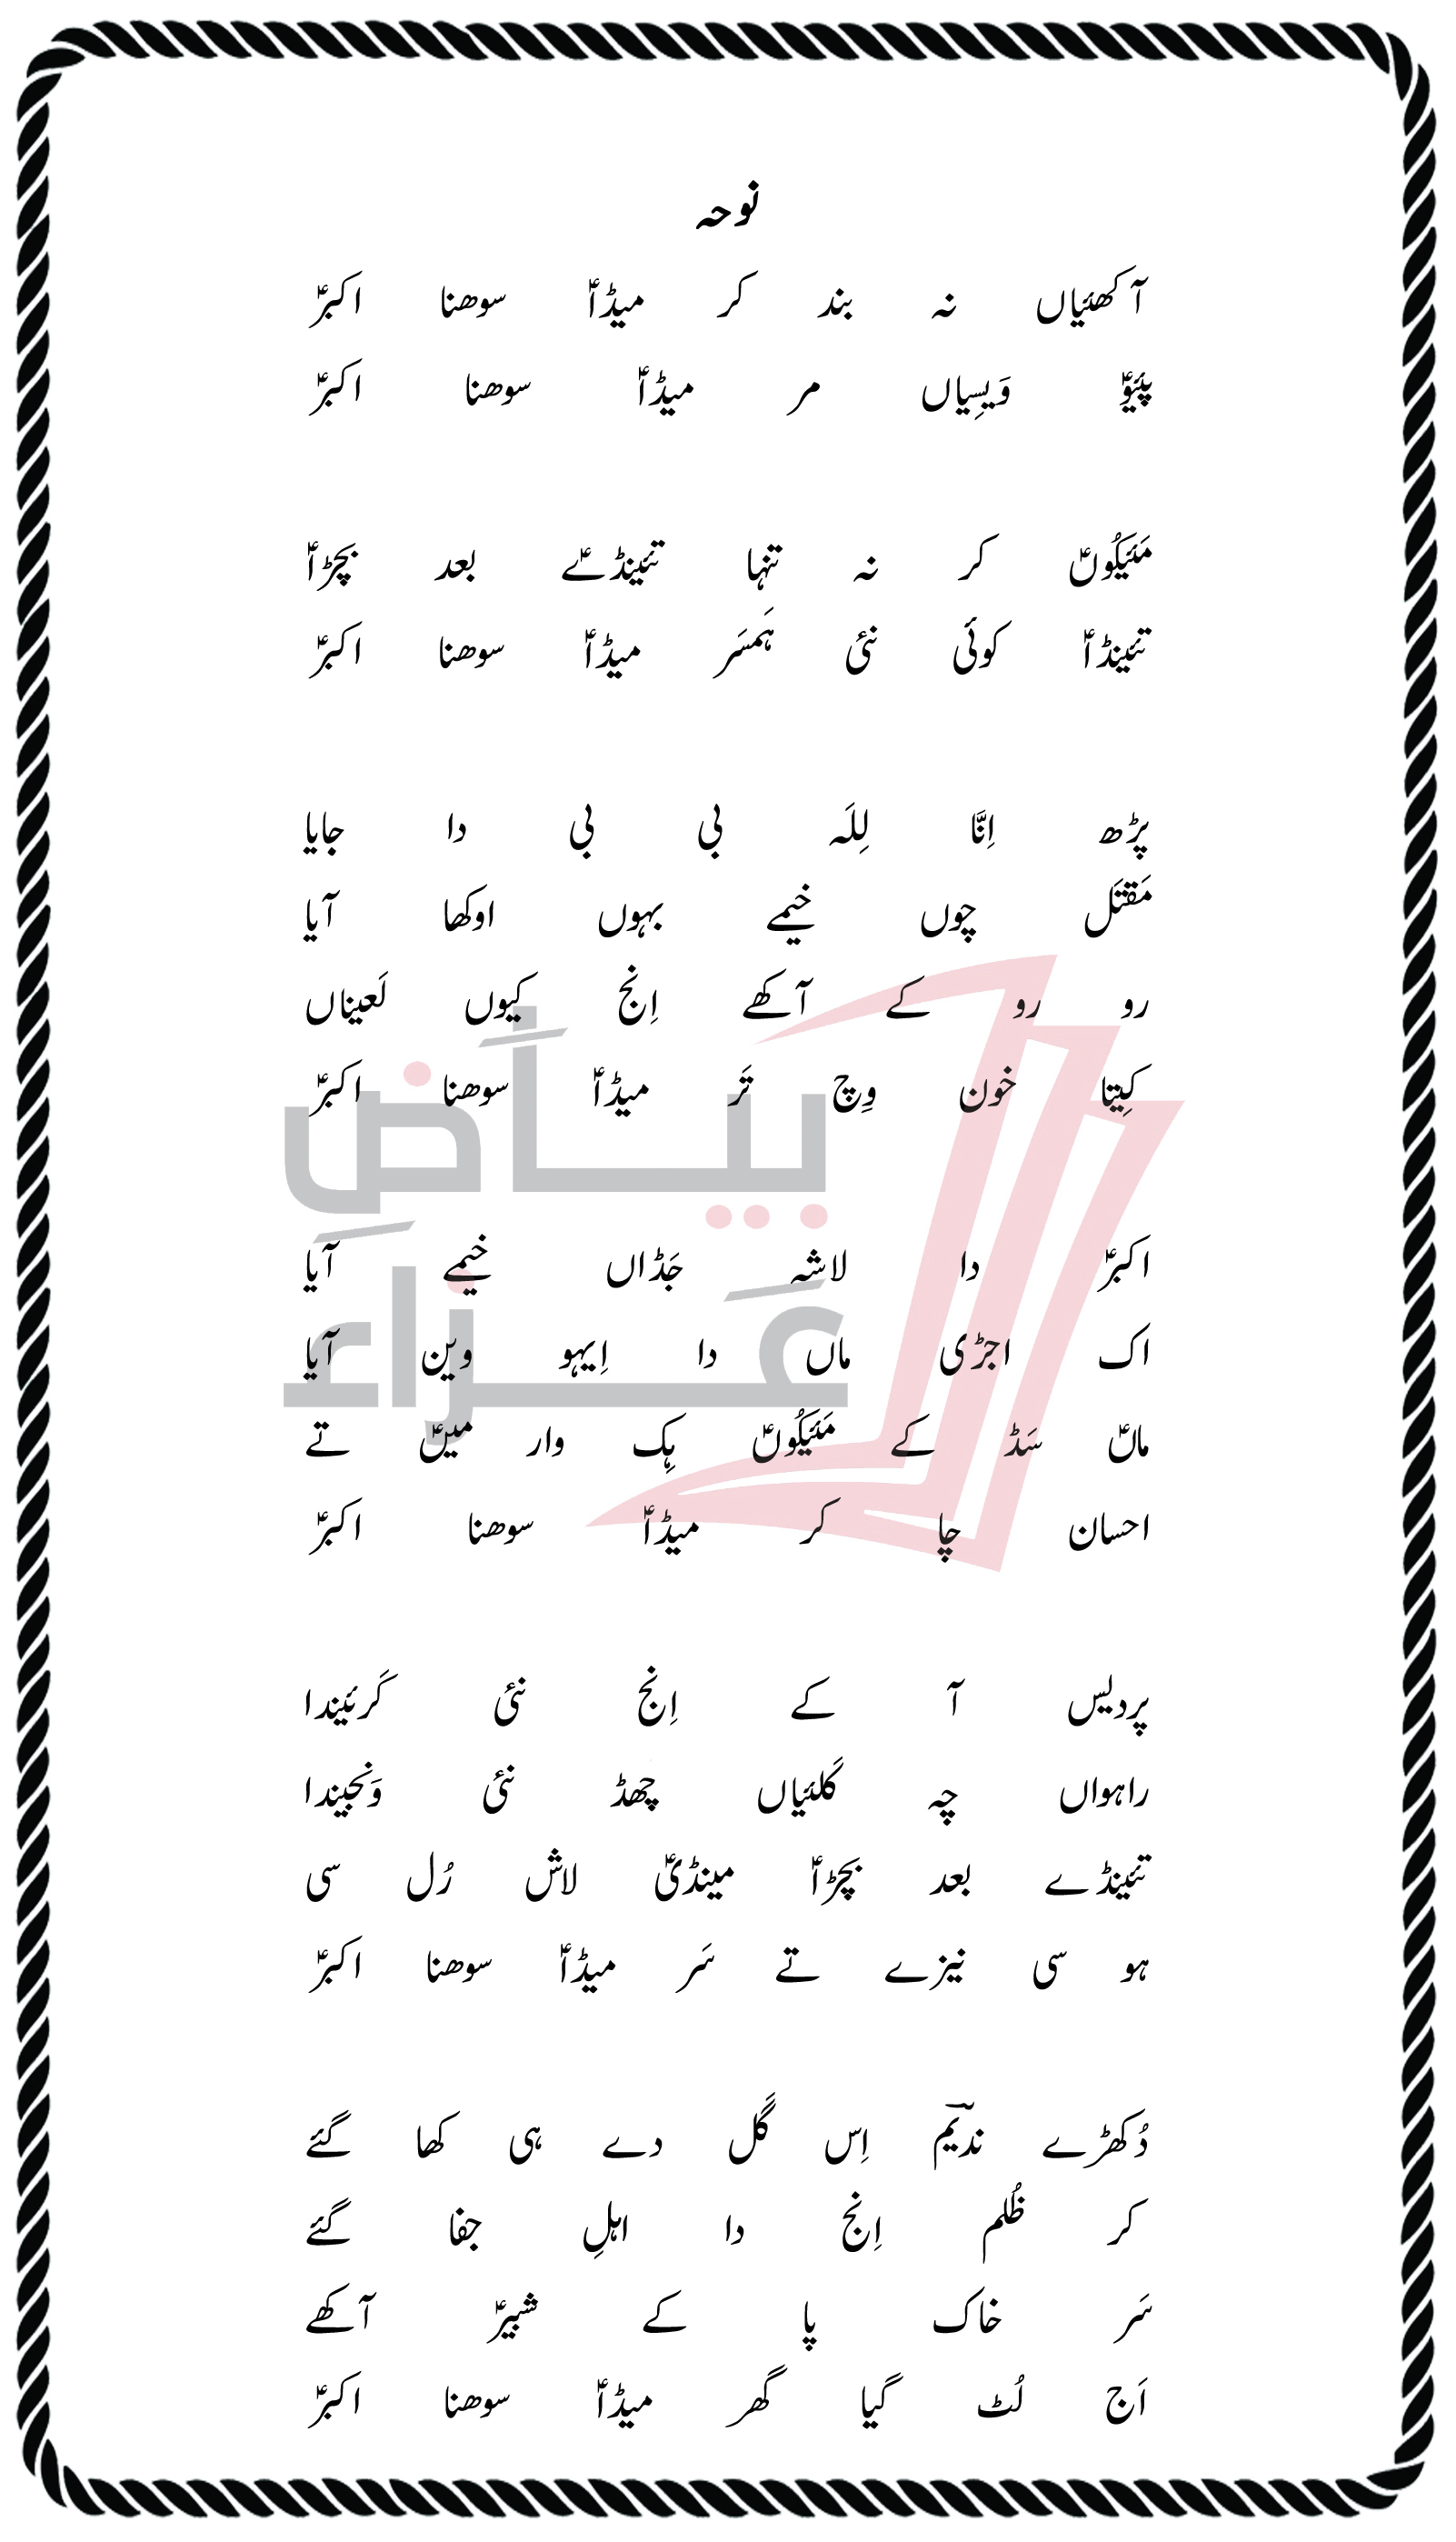 نوحہ
آکھئیاں نہ بند کر میڈاؑ سوھنا اکبرؑ
پئیوؑ وَیسِیاں مر میڈاؑ سوھنا اکبرؑ
مَئیکُوںؑ کر نہ تنہا تئینڈےؑ بعد بچڑاؑ
تئینڈاؑ کوئی نئی ہَمسَر میڈاؑ سوھنا اکبرؑ
پڑھ اِنَّا لِلَہ بی بی دا جایا
مَقتَل چوں خیمے بہوں اوکھا آیا
رو رو کے آکھے اِنج کیوں لَعیناں
کِیتا خون وِچ تَر میڈاؑ سوھنا اکبرؑ
بیاضِ
عزاء
اکبرؑ دا لاشہ جَڈاں خیمے آیا
اک اجڑی ماں دا اِیہو وین آیا
ماںؑ سَڈ کے مَئیکُوںؑ ہِک وار میںؑ تے
احسان چا کر میڈاؑ سوھنا اکبرؑ
پردیس آ کے اِنج نئی کَرئیندا
راہواں چہ گلئیاں چھڈ نئی وَنجیندا
تئینڈے بعد بچڑاؑ مینڈیؑ لاش رُل سی
ہو سی نیزے تے سَر میڈاؑ سوھنا اکبرؑ
دُکھڑے ندیمؔ اِس گَل دے ہی کھا گئے
کر ظُلم اِنج دا اہلِ جفا گئے
سَر خاک پا کے شبیرؑ آکھے
اَج لُٹ گیا گھر میڈاؑ سوھنا اکبرؑ